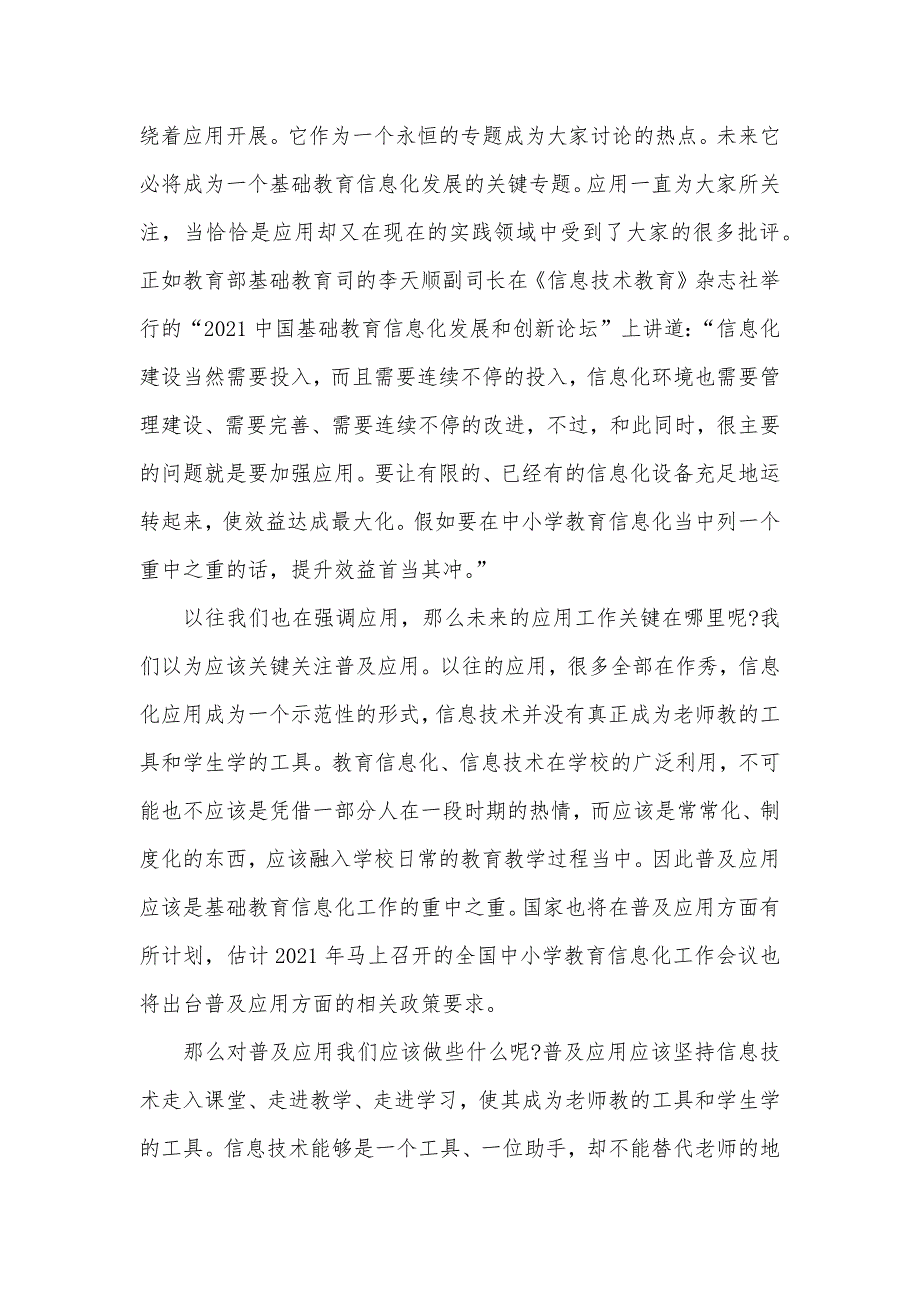 绕着应用开展。它作为一个永恒的专题成为大家讨论的热点。未来它
必将成为一个基础教育信息化发展的关键专题。应用一直为大家所关
注，当恰恰是应用却又在现在的实践领域中受到了大家的很多批评。
正如教育部基础教育司的李天顺副司长在《信息技术教育》杂志社举
行的“2021中国基础教育信息化发展和创新论坛”上讲道：“信息化
建设当然需要投入，而且需要连续不停的投入，信息化环境也需要管
理建设、需要完善、需要连续不停的改进，不过，和此同时，很主要
的问题就是要加强应用。要让有限的、已经有的信息化设备充足地运
转起来，使效益达成最大化。假如要在中小学教育信息化当中列一个
重中之重的话，提升效益首当其冲。”
以往我们也在强调应用，那么未来的应用工作关键在哪里呢?我
们以为应该关键关注普及应用。以往的应用，很多全部在作秀，信息
化应用成为一个示范性的形式，信息技术并没有真正成为老师教的工
具和学生学的工具。教育信息化、信息技术在学校的广泛利用，不可
能也不应该是凭借一部分人在一段时期的热情，而应该是常常化、制
度化的东西，应该融入学校日常的教育教学过程当中。因此普及应用
应该是基础教育信息化工作的重中之重。国家也将在普及应用方面有
所计划，估计2021年马上召开的全国中小学教育信息化工作会议也
将出台普及应用方面的相关政策要求。
那么对普及应用我们应该做些什么呢?普及应用应该坚持信息技
术走入课堂、走进教学、走进学习，使其成为老师教的工具和学生学
的工具。信息技术能够是一个工具、一位助手，却不能替代老师的地